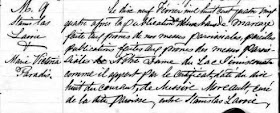 No. 9
Stanislas
Larue
&
Marie Victoria
Paradis.
Le dix neuf Février mil huit cent quatre vingt
quatre après la publication d'un ban de mariage
faite aux prônes de nos messes paroissiales
publications faites aux prônes des messes parois-
siales de Notre Dame du Lac Témiscouata
comme il appert par le certificat daté du dix
huit du courant, de Messire Moreault, curé
de la dite Paroisse, entre Stanislas Larue